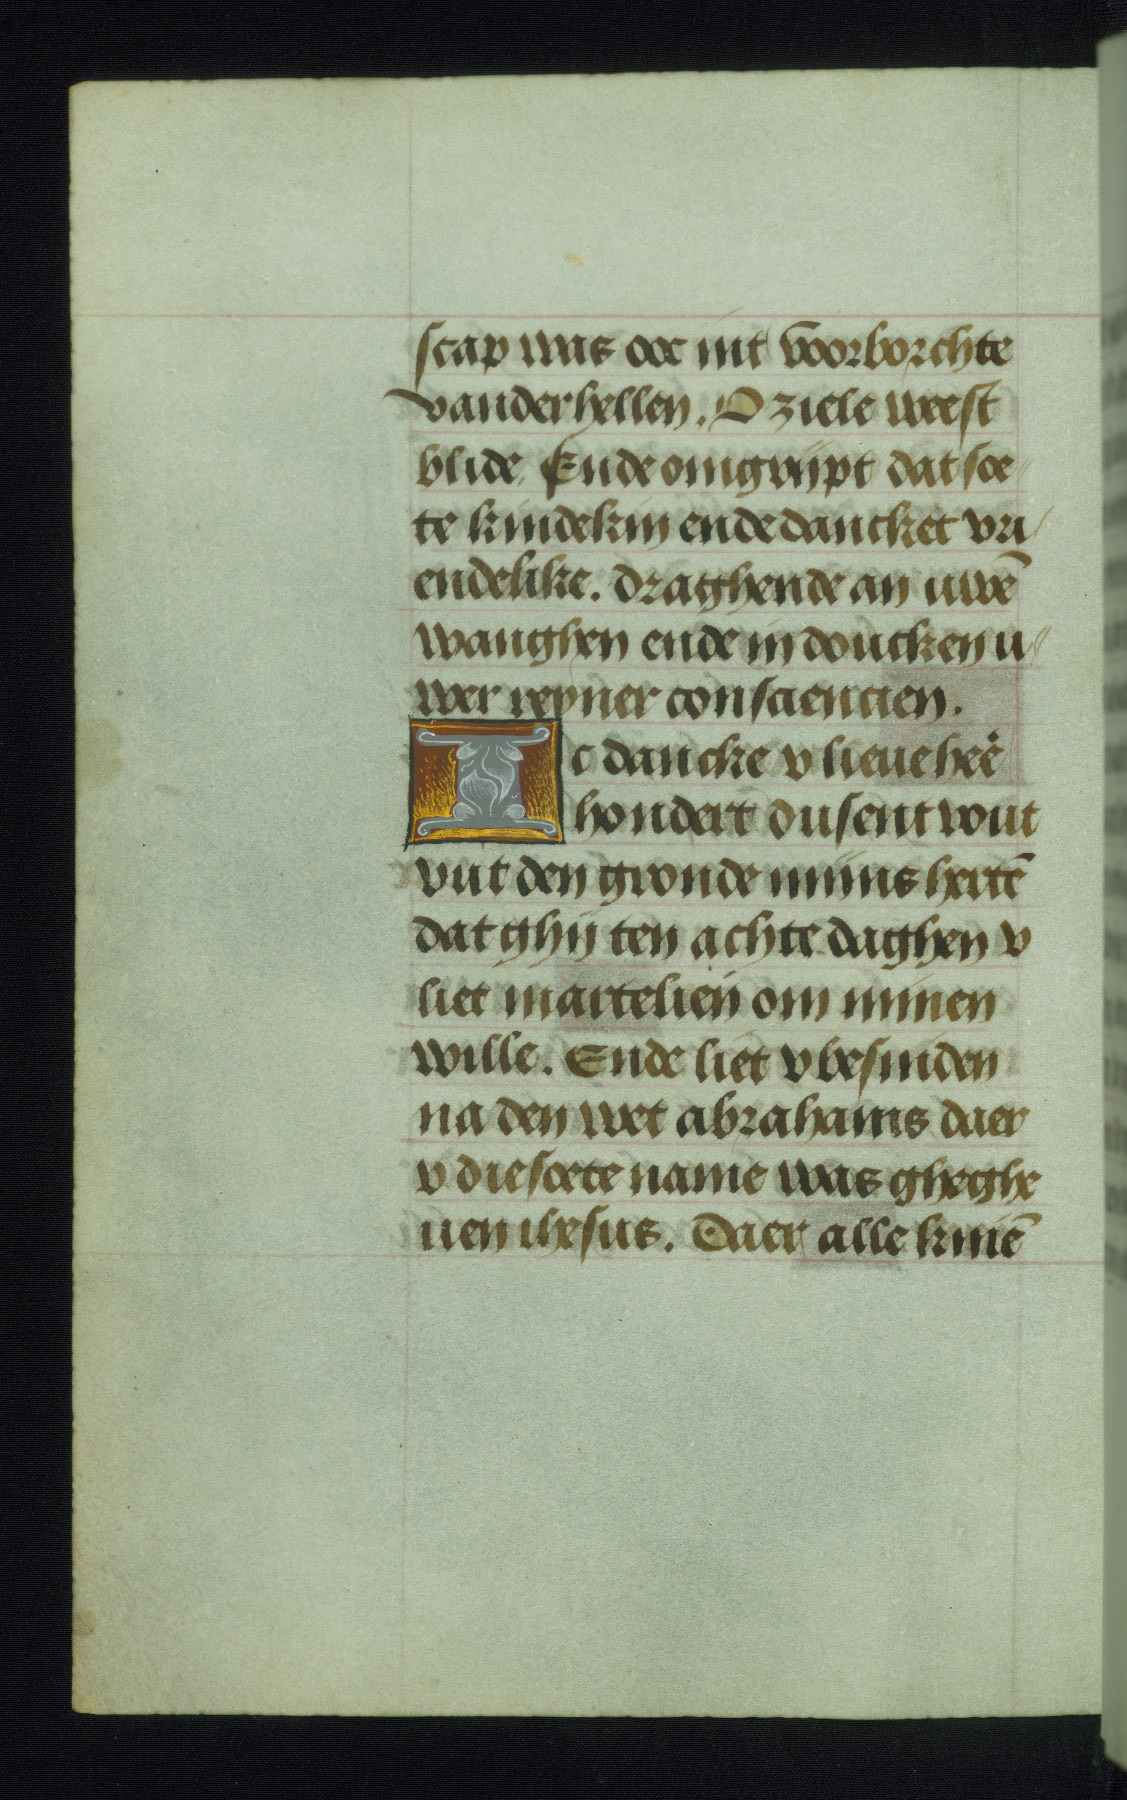 scap was ooc int voorborchte
vanderhellen. O ziele weest
blide Ende omgrijpt dat soe"
te kindekin ende dancket vri/
endelike. draghende an uwē
wanghen ende in doucken u"
wer reyner consciencien.
Ic dancke v lieue heē
hondert dusent wut
vut den gronde mijns hertē
dat ghij ten achte daghen v
liet martelien om minen
wille. Ende liet v besniden
na den wet abrahams daer
v die soete name was gheghe
uen ihesus. Daer alle kniē